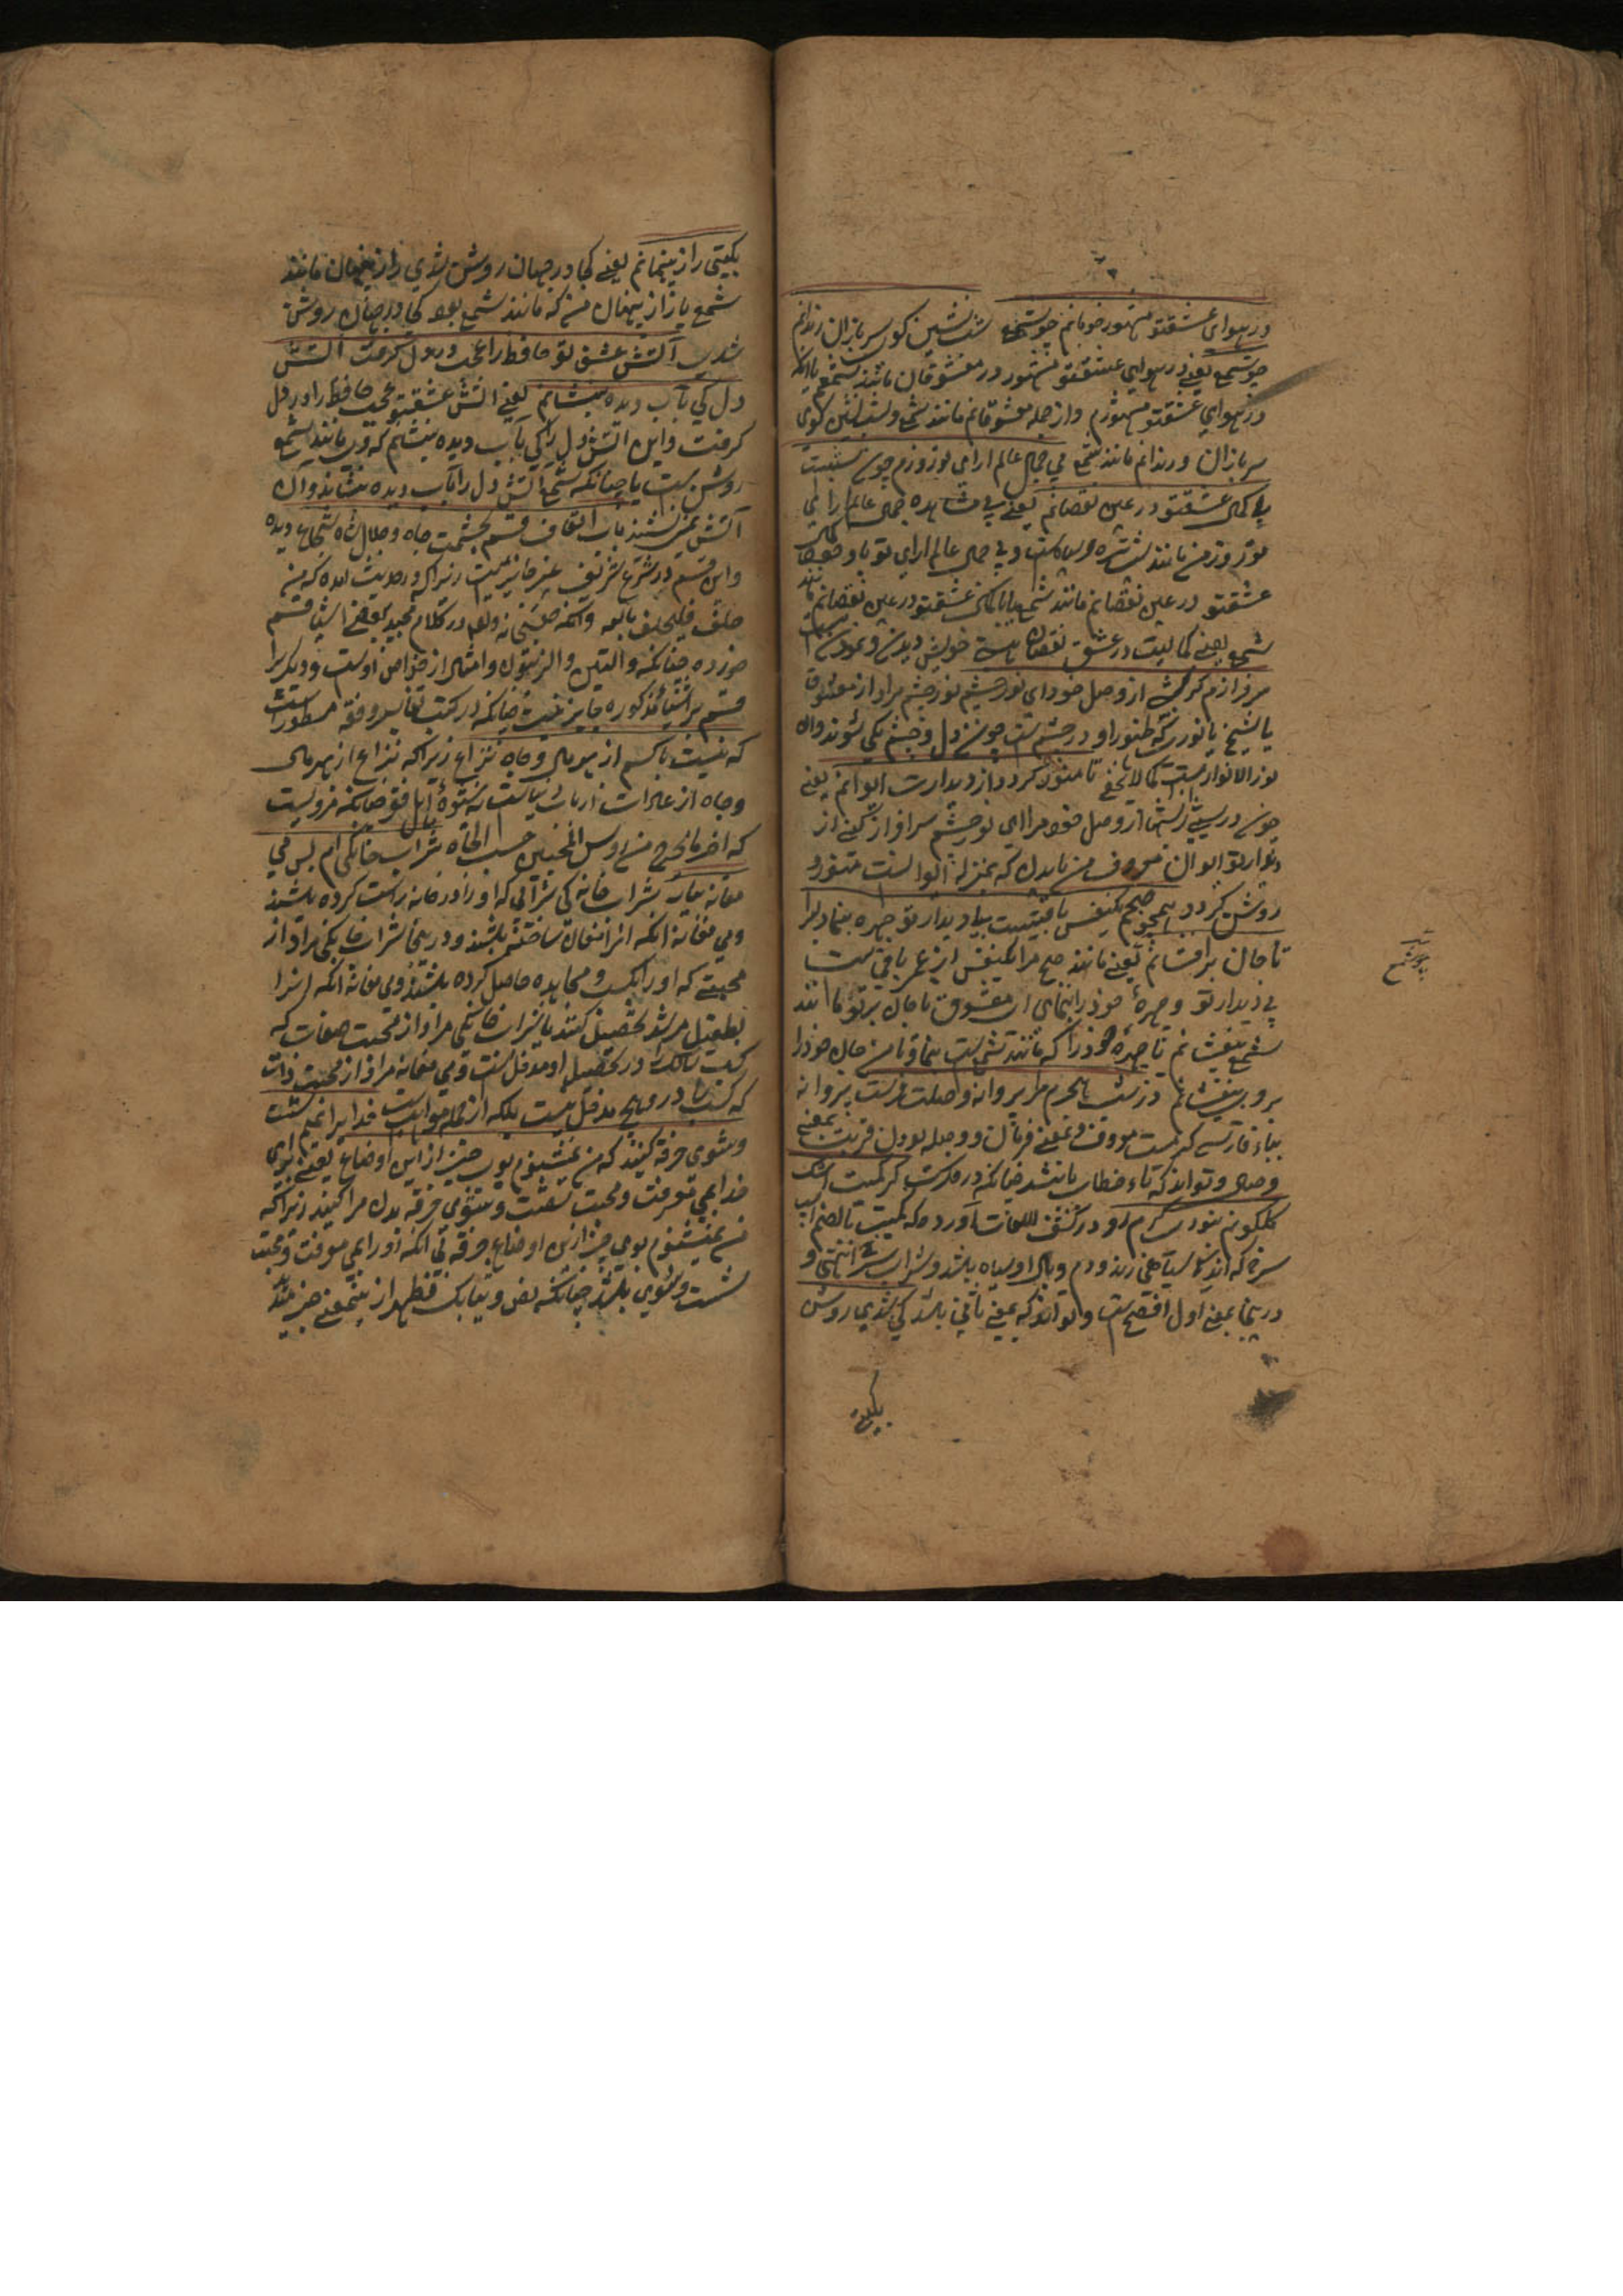 در هوای عشقتو مشهور خوبانم چو شمع شب نشین کوی سربازان رندانم
چو شمع یعنے در هوای عشقتو مشهور در معشوقان مانند شمع یا آنکه
در هوای عشقتو مشهورم و از جمله معشوقانم مانند شمع و شب نشین کوی
سربازان و رندانم مانند شمع بی جمال عالم ارای تو روزم چون شبست
با کمال عشقتو در عین نقصانم یعنے بی مشاهده جمال عالم ارای
تو روز من مانند شب تیره و سیاه است و بی جمال عالم ارای تو با وجود کمال
عشقتو در عین نقصانم مانند شمع یا با کمال عشقتو در عین نقصانم مانند
شمع یعنے کمالیت در عشق نقصان هستے خویش دیدن و نمودن
سرفرازم کن شبے از وصل خود ای نور چشم نور چشم مراد از معشوق
یا شیخ یا نوری که ظهور او در چشم است چون دل و چشم یکی شوند و ان
نور الانوار است کما لا یخفی تا منور گردد از دیدارت ایوانم یعنے
چون در شبے از شبها از وصل خود مرا ای نور چشم سرافراز کنی از
دیدار تو ایوان معروف من یا بدن که بمنزله ایوانست منور و
روشن گردد همچو صبحم یکنفس باقیست بے دیدار تو چهره بنما دلبرا
تا جان برافشانم یعنے مانند صبح مرا یکنفس از عمر باقی است
بی دیدار تو و چهرهٔ خود را بنمای ای معشوق تا جان بر تو مانند
شمع بیفشانم یا چهرهٔ خود را که مانند شمع است بنما تا من جان خود را
برو بیفشانم در شب هجرم مرا پروانه وصلت فرست پروانه
بباء فارسی کرمیست معروف و بمعنے فرمان و وصله بودن قربت بمعنے
وصال و تواند که تاء خطاب باشد چنانکه در فرست گر کمیت اشک
گلگونم نبودی گرم رو در کشف اللغات آورده که کمیت بالضم اسپ
سرخ که اندک سیاهی زند و دم و یال او سیاه باشد و شراب سرخ انتهی و
در اینجا بمعنے اول افصح است و تواند که بمعنے ثانی باشد کی شدی روشن
بگیتی
چو شمع
بگیتی راز پنهانم یعنے کجا در جهان روشن شدی راز پنهان مانند
شمع یا راز پنهان من که مانند شمع بود کجا در جهان روشن
شدی آتش عشق تو حافظ را عجب در دل گرفت آتش
دل کی بآب دیده بنشانم یعنے آتش عشقتو عجب حافظ را در دل
گرفت و این آتش دل را کی بآب دیده بنشانم که او مانند شمع
روشن است یا چنانکه شمع آتش دل را بآب دیده بنشاند و آن
آتش نمی نشیند باب القاف قسم بحشمت و جاه و جلال شاه شجاع دیده
و این قسم در شرع شریف غیر جایز نیست زیرا که در حدیث آمده که من
حلف فلیحلف بالله و انکه حقتعالی در کلام مجید ببعضی اشیا قسم
خورده چنانکه والتین والزیتون و امثال از خواص اوست و دیگر را
قسم بر اشیاء مذکوره جایز نیست چنانکه در کتب تفاسیر و فقه مسطور است
که نیست با کسم از بهر مال و جاه نزاع زیرا که نزاع از بهر مال
و جاه از عادات ارباب دنیاست نه شیوهٔ اهل فقر چنانکه مرویست
که اخر ما یخرج من رؤس المحبین حب الجاه شراب خانگیم بس می
مغانه بیار شراب خانگی شرابی که او را در خانه راست کرده باشند
و می مغانه انکه انرا مغان ساخته باشند و در اینجا شراب خانگی مراد از
محبتے که او را بکسب و مجاهده حاصل کرده باشند و می مغانه انکه او را
بطفیل مرشد تحصیل کنند یا شراب خانگی مراد از محبت صفات که
کسب سالک را در تحصیل او مدخل است و می مغانه مراد از محبت ذات
که کسب را در وی هیچ مدخل نیست بلکه از جمله مواهب است خدایرا بمیم شست
و شوی خرقه کنید که من نمیشنوم بوی خیر از این اوضاع یعنے برای
خدا بمی معرفت و محبت شست و شوی خرقه بدن مرا کنید زیرا که
من نمیشنوم بوی خیر از این اوضاع خرقه بی انکه او را بمی معرفت و محبت
شست و شوی باشد چنانکه نص و ثیابک فطهر از این معنے خبر میدهد